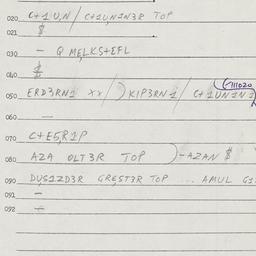 020 C+1U,N / C+1U,N1N3R TOP
021 $
030 – Q MELKS+EFL
040 $
050 ERD3RN1 XX / ) KIP3RN1 / C+1UN1N1
060 —
070 C+E5,R1P
080 AZA OLT3R TOP ) –AZAN $
090 DUS1ZD3R GREST3R TOP ... AMUL G1
091 –
092